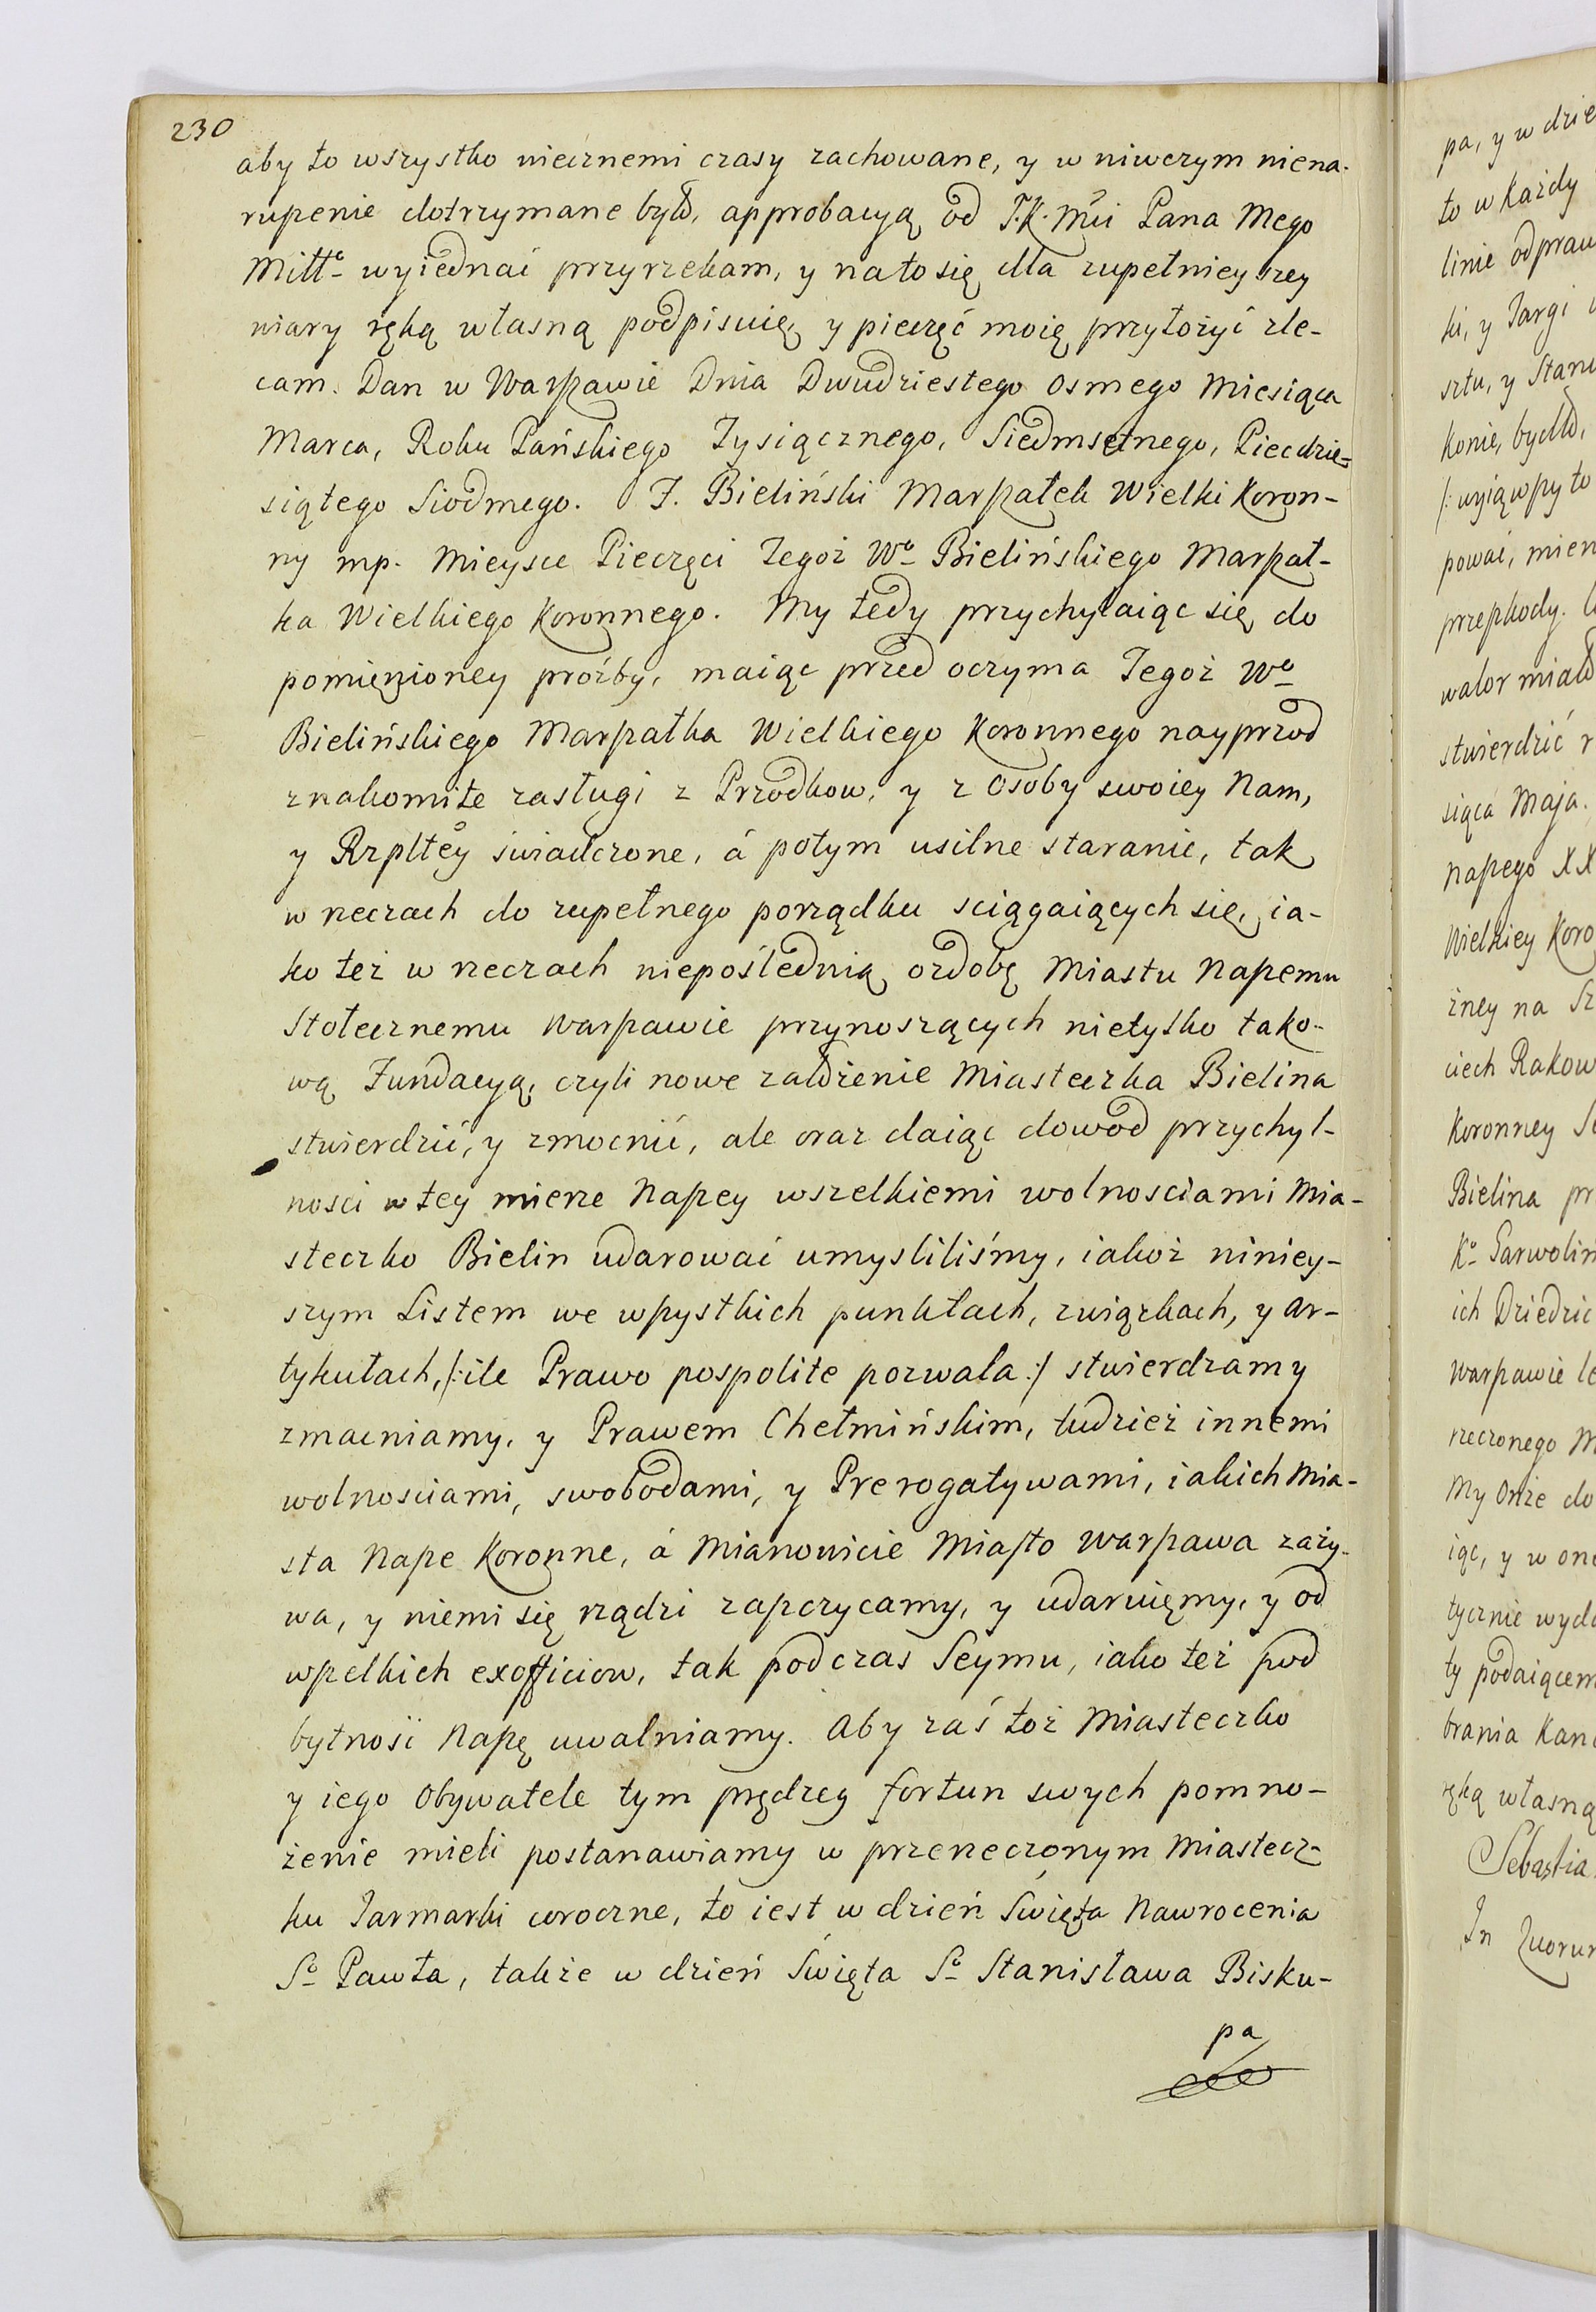 230
aby to wszystko wiecznemi czasy zachowane, y w niwczym niena-
ruszenie dotrzymane było, approbacyą od J.K. Mći Pana Mego
Miłło wyiednać przyrzekam, y na to się dla zupełnieyszey
wiary ręką własną podpisuię, y pieczęć moię przyłożyć zle-
cam. Dan w Warszawie Dnia Dwudziestego Osmego Miesiąca
Marca, Roku Pańskiego Tysiącznego, Siedmsetnego, Piecdzie-
siątego Siodmego. F. Bieliński Marszałek Wielki Koron-
ny mp. Mieysce Pieczęci Tegoż Wo Bielińskiego Marszał-
ka Wielkiego Koronnego. My tedy przychylaiąc się do
pomięnioney prożby, maiąc przed oczyma Tegoż Wo
Bielińskiego Marszałka Wielkiego Koronnego nayprzod
znakomite zasługi z Przodkow, y z Osoby swoiey Nam,
y Rzpltey swiadczone, á potym usilne staranie, tak
w rzeczach do zupełnego porządku sciągaiących się, ia-
ko też w rzeczach niepoślednią ozdobę Miastu Naszemu
Stołecznemu Warszawie przynoszących nietylko tako-
wą Fundacyą, czyli nowe założenie Miasteczka Bielina
stwierdzić, y zmocnić, ale oraz daiąc dowod przychyl-
nosci w tey mierze Naszey wszelkiemi wolnosciami Mia-
steczko Bielin udarować umysliliśmy, iakoż niniey-
szym Listem we wszystkich punktach, związkach, y Ar-
tykułach, /: ile Prawo pospolite pozwala :/ stwierdzamy
zmacniamy, y Prawem Chełmińskim, tudzież innemi
wolnosciami, swobodami, y Prerogatywami, iakich Mia-
sta Nasze Koronne, á Mianowicie Miasto Warszawa zaży-
wa, y niemi się rządzi zaszczycamy, y udaruięmy, y od
wszelkich exofficiow, tak podczas Seymu, iako też pod
bytnosć Naszę uwalniamy. Aby zaś toż Miasteczko
y iego Obywatele tym prędzey fortun swych pomno-
żenie mieli postanawiamy w przerzeczonym Miastecz-
ku Jarmarki coroczne, to iest w dzień Swięta Nawrocenia
So Pawła, także w dzień Święta So Stanisława Bisku-
pa
pa, y w dzie
to w każdy
linie odpraw
ki, y Targi
sztu, y Stano
konie, bydło,
/: wyiąwszy to
pować, mien
przeszkody.
walor miało
stwierdzić r
siąca Maja.
Naszego XX
Wielkiey Koro
żney na Sz
ciech Rakow
Koronney Se
Bielina pr
Ko Garwoliń
ich Dziedzic
Warszawie le
rzeczonego M
My Onże do
iąc, y w one
tycznie wyda
ty podaiącem
brania Kanc
ręką własną
Sebastia
In Quorum